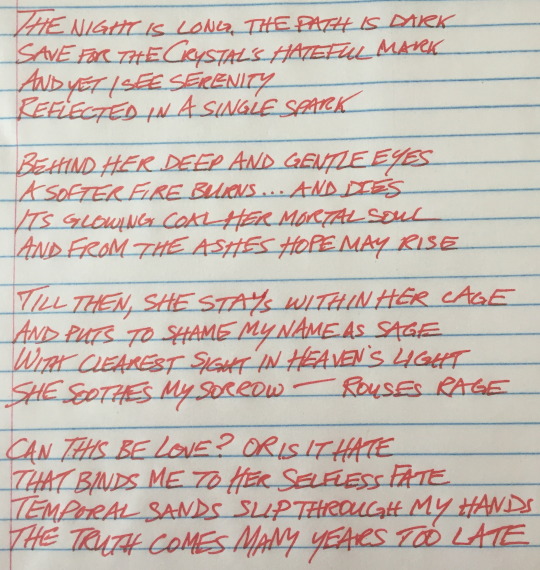 THE NIGHT IS LONG, THE PATH IS DARK
SAVE FOR THE CRYSTAL'S HATEFUL MARK
AND YET I SEE SERENITY
REFLECTED IN A SINGLE SPARK

BEHIND HER DEEP AND GENTLE EYES
A SOFTER FIRE BURNS... AND DIES
ITS GLOWING COAL HER MORTAL SOUL
AND FROM THE ASHES HOPE MAY RISE

TILL THEN, SHE STAYS WITHIN HER CAGE
AND PUTS TO SHAME MY NAME AS SAGE
WITH CLEAREST SIGHT IN HEAVEN'S LIGHT
SHE SOOTHES MY SORROW — ROUSES RAGE

CAN THIS BE LOVE? OR IS IT HATE
THAT BINDS ME TO HER SELFLESS FATE
TEMPORAL SANDS SLIP THROUGH MY HANDS
THE TRUTH COMES MANY YEARS TOO LATE